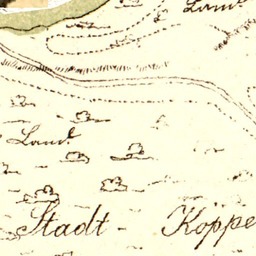 Land
Land
Stadt - Koppe